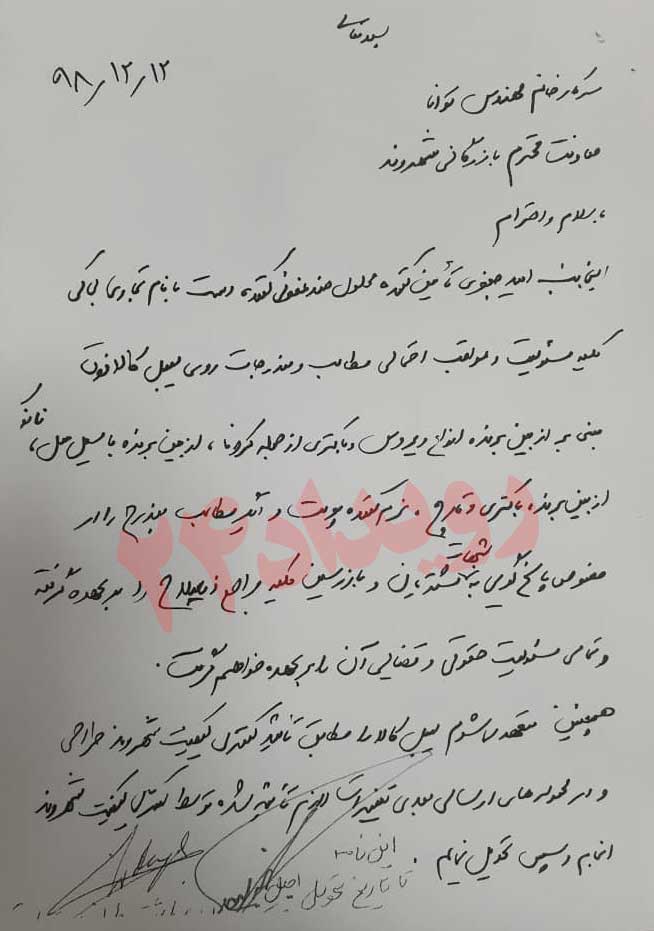 بسمه تعالی
۹۸/۱۲/۱۲
سرکار خانم مهندس توانا
معاونت محترم بازرگانی شهروند
با سلام و احترام
اینجانب امید جعفری تأمین کننده محلول ضدعفونی کننده دست با نام تجاری
کلیه مسئولیت و عواقب احتمالی مطالب و مندرجات روی لیبل کالا فوق
مبنی بر از بین برنده انواع ویروس و باکتری از جمله کرونا، از بین برنده
نانو
از بین برنده باکتری و قارچ، نرم کننده پوست و مطالب مندرج را در
خصوص پاسخگویی به شکایات مشتریان و بازرسین کلیه مراجع ذیصلاح را بر عهده گرفته
و تمامی مسئولیت حقوقی و قضایی آن را بر عهده خواهم گرفت.
همچنین متعهد می‌شوم لیبل کالا را مطابق تأیید کنترل کیفیت شهروند طراحی
و در محموله‌های ارسالی بعدی تغییرات لازم تأیید شده توسط کنترل کیفیت شهروند
انجام و سپس تحویل نمایم.
این نامه
تا تاریخ تحویل اصل
رویداد۲۴